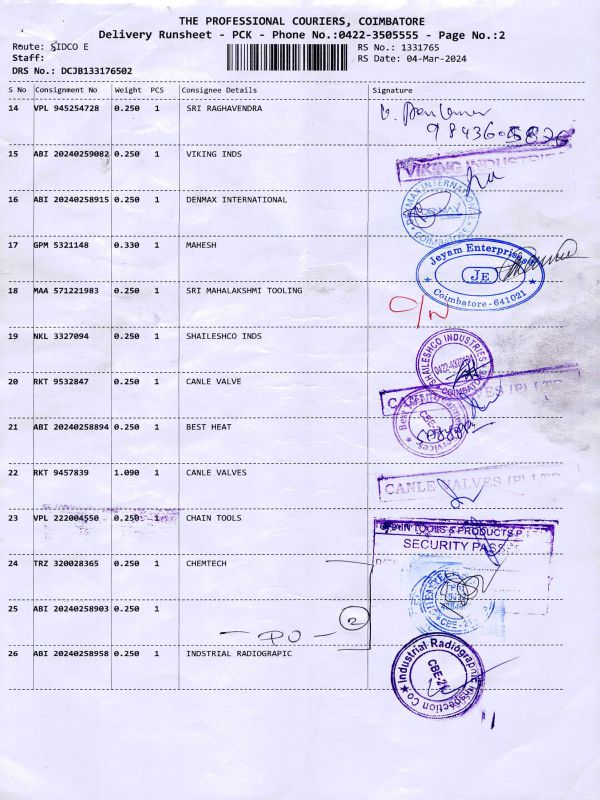 THE PROFESSIONAL COURIERS, COIMBATORE
Delivery Runsheet - PCK - Phone No.:0422-3505555 - Page No.:2
Route: SIDCO E RS No.: 1331765
Staff: RS Date: 04-Mar-2024
DRS No.: DCJB133176502
S No Consignment No Weight PCS Consignee Details Signature
14 VPL 945254728 0.250 1 SRI RAGHAVENDRA
15 ABI 20240259082 0.250 1 VIKING INDS
VIKING INDUSTRIES
16 ABI 20240258915 0.250 1 DENMAX INTERNATIONAL
DENMAX INTERNATIONAL
COIMBATORE
17 GPM 5321148 0.330 1 MAHESH
Jeyam Enterprises
JE
Coimbatore - 641021
18 MAA 571221983 0.250 1 SRI MAHALAKSHMI TOOLING
O/N
19 NKL 3327094 0.250 1 SHAILESHCO INDS
SHAILESHCO INDUSTRIES
COIMBATORE
20 RKT 9532847 0.250 1 CANLE VALVE
CANLE VALVES (P) LTD
21 ABI 20240258894 0.250 1 BEST HEAT
Best
Services
CBE-21
22 RKT 9457839 1.090 1 CANLE VALVES
CANLE VALVES (P) LTD
23 VPL 222004550 0.250 1 CHAIN TOOLS
CHAIN TOOLS & PRODUCTS P
SECURITY PASS
24 TRZ 320028365 0.250 1 CHEMTECH
CBE-21
25 ABI 20240258903 0.250 1
- PO - 2
26 ABI 20240258958 0.250 1 INDSTRIAL RADIOGRAPIC
Industrial Radiographic Inspection Co
CBE-21